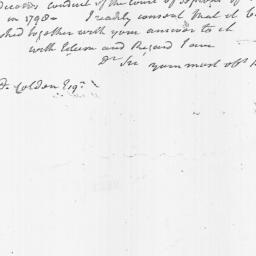 conduct of the Court of
in 1790 — I readily consent that it be
together with your answer to it
with Esteem and Regard I am
Dr Sir your most obt
Colden Esqr